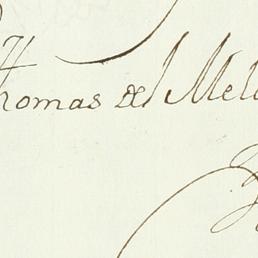 Thomas del Mel